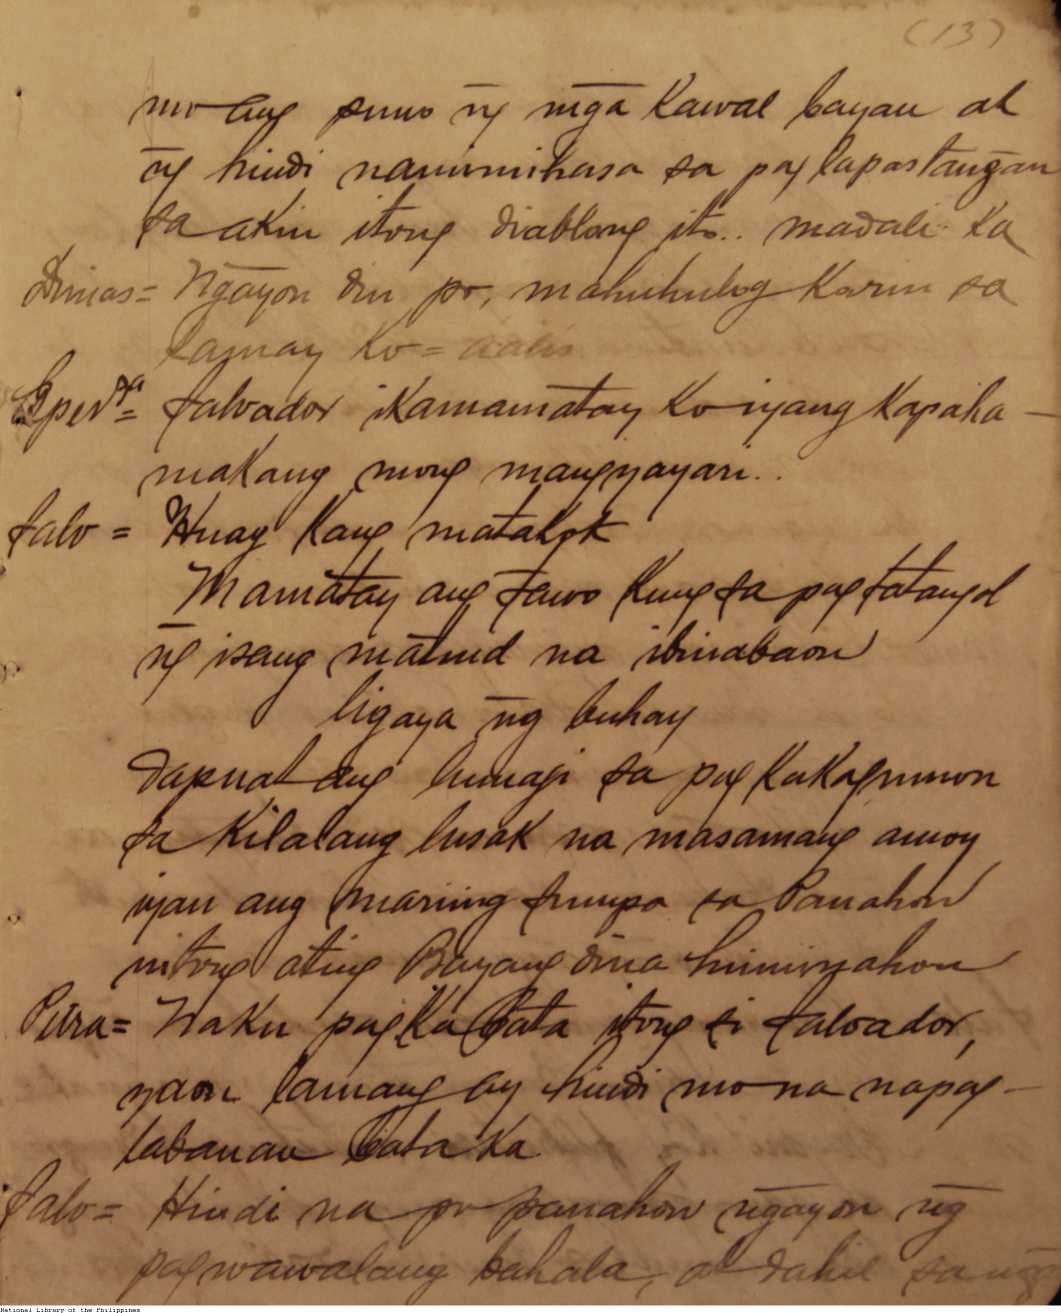 (13)
mo ang puno n̄g mḡa Kawal bayan at
n̄g hindi namimihasa sa pag lapastan̄gan
sa akin itong diablong ito.. madali Ka
Dimas= N̄gayon din po, mahuhulog Karin sa
Kamay Ko = aalis
Sper.za= Salvador iKamamatay Ko iyang Kapaha-
makang mong mangyayari..
Salv = Huag Kang matakot
Mamatay ang tawo Kung sa pag tatangol
n̄g isang matuid na ibinabaon
ligaya n̄g buhay
dapuat ang humagi sa pag KaKagumon
sa Kilalang lusak na masamang amoy
iyan ang mariing sumpa sa Panahon
nitong ating Bayang dina huminyahon
Pura= Naku pagKa bata itong si Salvador,
yaon lamang ay hindi mo na napag-
labanan bata Ka
Salv= Hindi na po panahon n̄gayon n̄g
pagwawalang bahala, at dahil sa
National Library of the Philippines